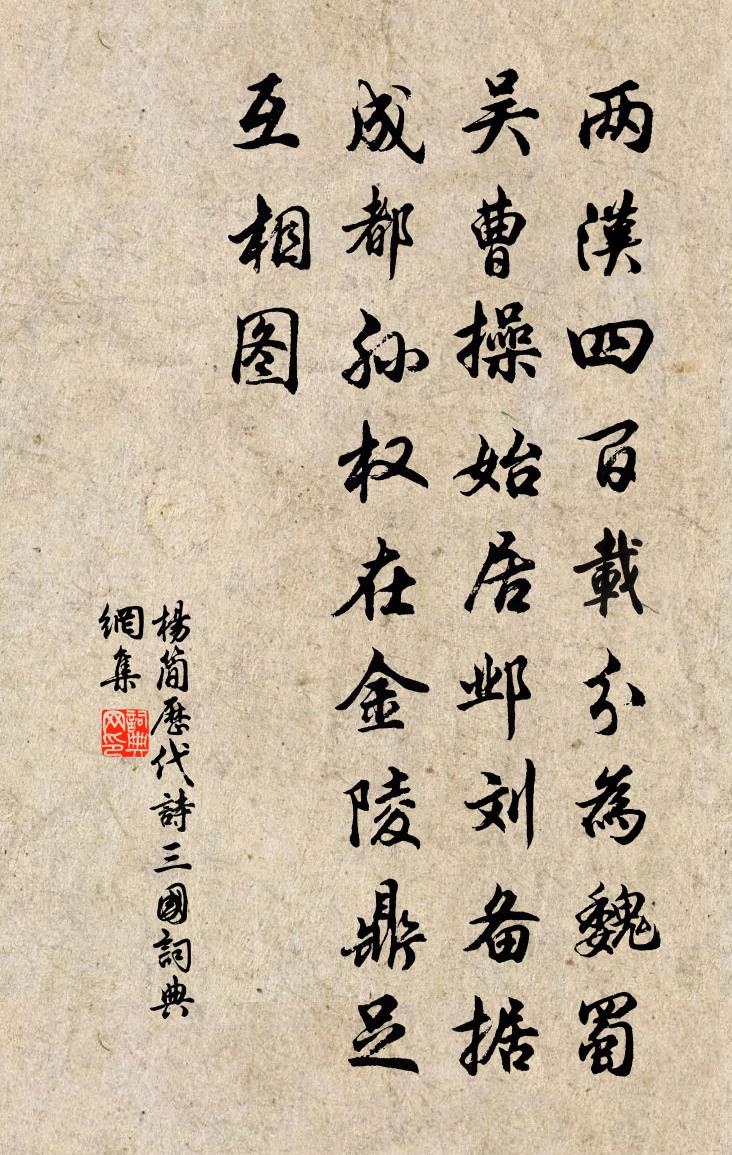 两漢四百載分為魏蜀
吴曹操始居邺刘备据
成都孙权在金陵鼎足
互相图
楊簡歷代詩三國詞典
網集
詞典
网印